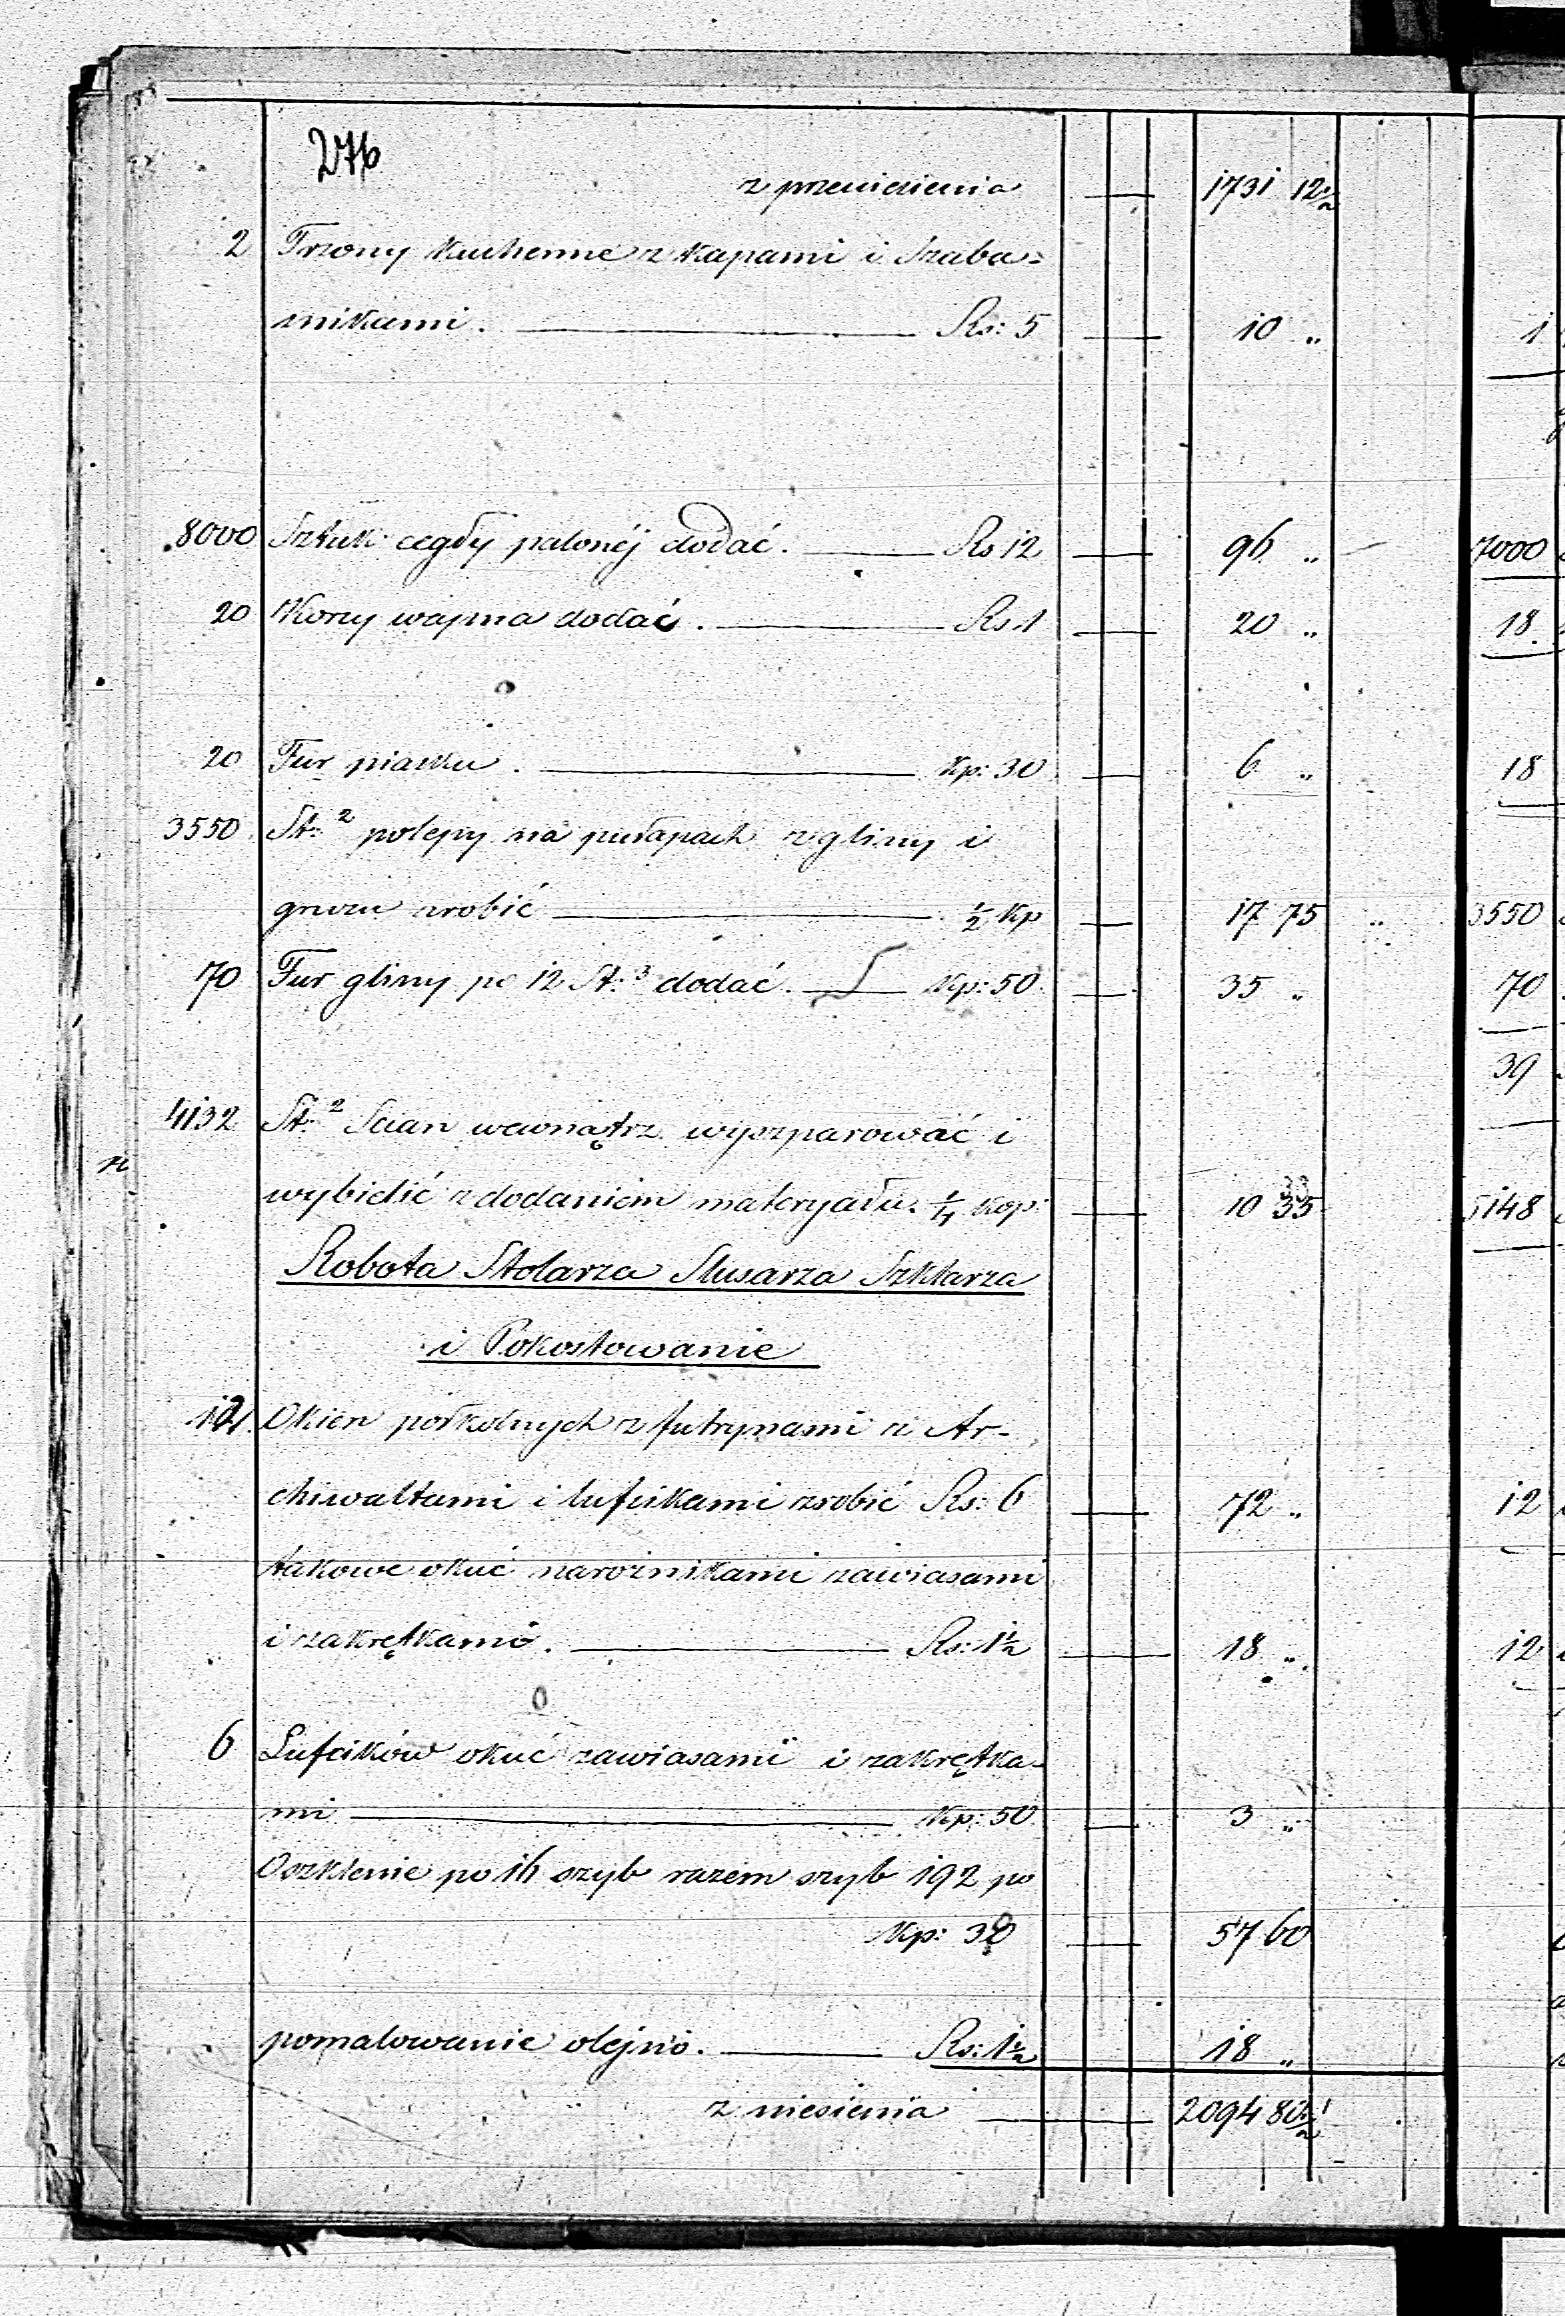 276
z przeniesienia — 1731 12½
2 Trzony kuchenne z kapami i Szaba=
snikami. — Rs: 5 — 10 „
8000 Sztuk cegły palonéj dodać. — Rs 12 — 96 „
20 Korcy wapna dodać. — Rs 1 — 20 „
20 Fur piasku. — Kp: 30 — 6 „
3550 St:² polepy na pułapach z gliny i
gruzu zrobić — ½ Kp — 17 75
70 Fur gliny po 12 St:³ dodać. — Kp: 50. — 35 „
4132 St:² Scian wewnątrz wyszparować i
wybielić z dodaniem materyału. ¼ Kop: — 10 33
Robota Stolarza Slusarza Szklarza
i Pokostowanie
12 Okien półkolnych z futrynami z Ar-
chiwaltami i lufcikami zrobić Rs: 6 — 72 „
takowe okuć narożnikami zawiasami
i zakrętkami. — Rs: 1½ — 18 „
6 Lufcików okuć zawiasami i zakrętka-
mi — Kp: 50 — 3 „
Oszklenie po 16 szyb razem szyb 192 po
Kp: 30 — 57 60
pomalowanie olejno. — Rs: 1½ — 18 „
z niesienia — 2094 80½
1
7000
18
18
3550
70
39
5148
12
12